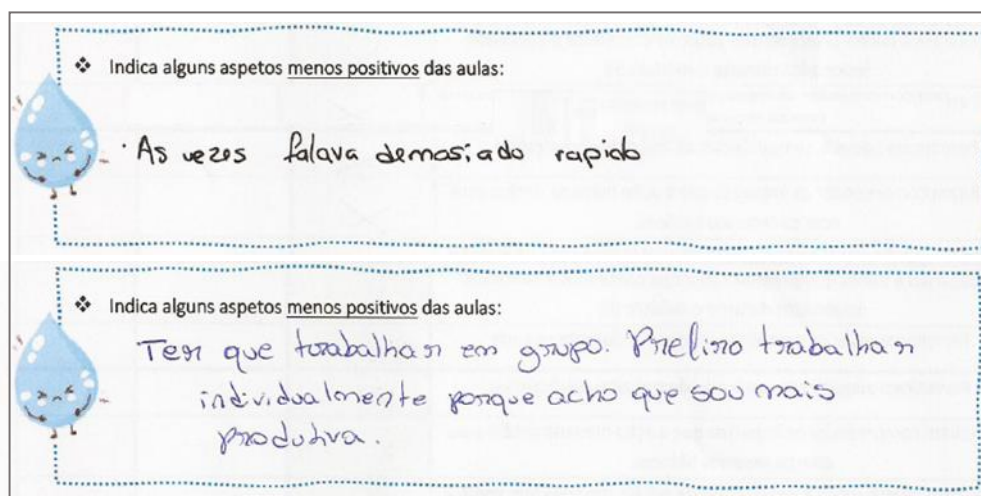 ❖ Indica alguns aspetos menos positivos das aulas:
· As vezes falava demasiado rapido
❖ Indica alguns aspetos menos positivos das aulas:
Ter que trabalhar em grupo. Prefiro trabalhar
individualmente porque acho que sou mais
produtiva.